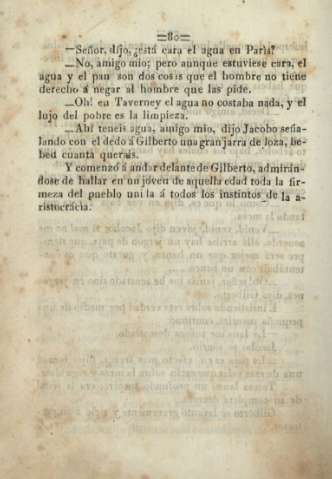 =80=
—Señor, dijo, ¿está cara el agua en Paris?
—No, amigo mio; pero aunque estuviese cara, el
agua y el pan son dos cosas que el hombre no tiene
derecho á negar al hombre que las pide.
—Oh! en Taverney el agua no costaba nada, y el
lujo del pobre es la limpieza.
—Ahi teneis agua, amigo mio, dijo Jacobo seña-
lando con el dedo á Gilberto una gran jarra de loza, be-
bed cuanta querais.
Y comenzó á andar delante de Gilberto, admirán-
dose de hallar en un joven de aquella edad toda la fir-
meza del pueblo unida á todos los instintos de la a-
ristocrácia.